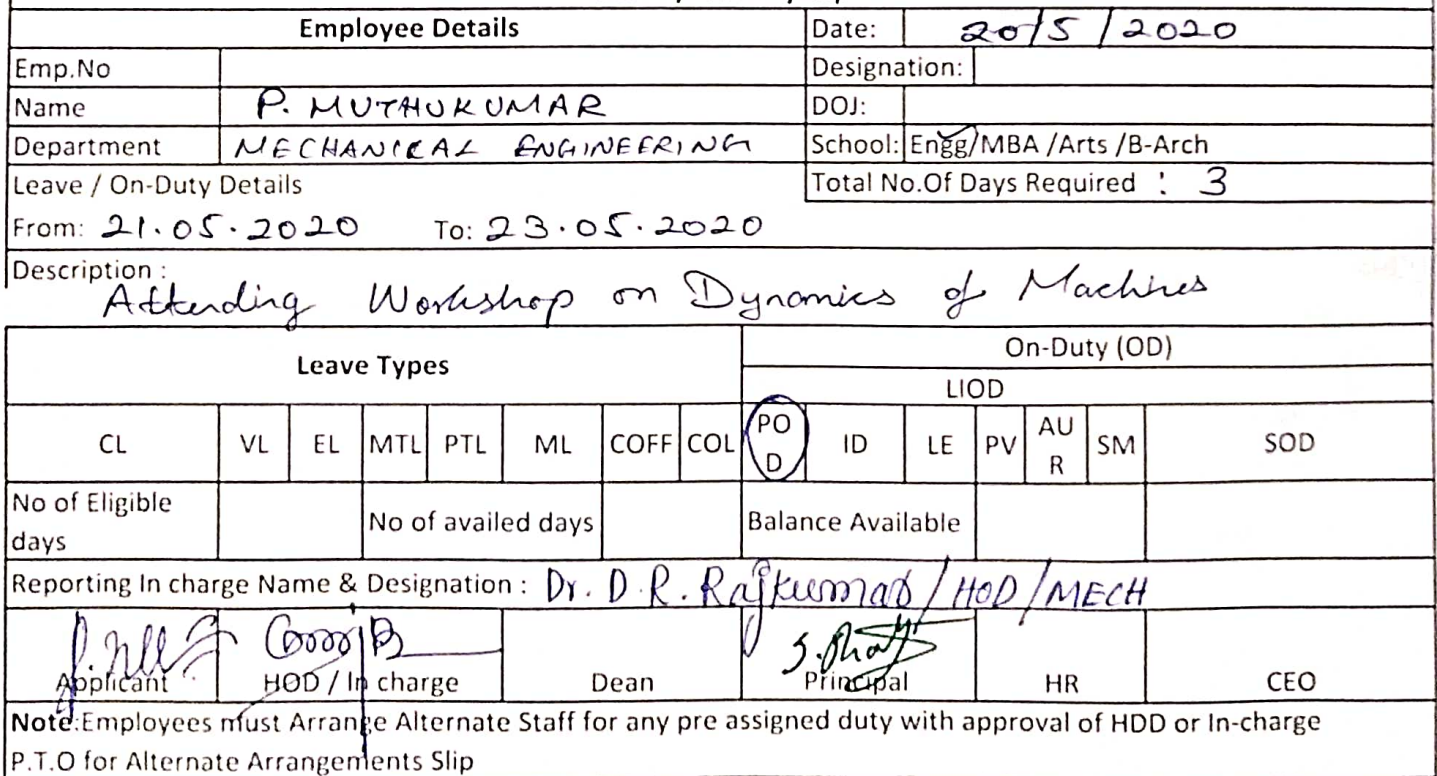 Employee Details Date: 20/5/2020
Emp.No Designation:
Name P. MUTHUKUMAR DOJ:
Department MECHANICAL ENGINEERING School: Engg/MBA /Arts /B-Arch
Leave / On-Duty Details Total No.Of Days Required : 3
From: 21.05.2020 To: 23.05.2020
Description :
Attending Workshop on Dynamics of Machines
Leave Types On-Duty (OD)
LIOD
CL VL EL MTL PTL ML COFF COL POD ID LE PV AUR SM SOD
No of Eligible days No of availed days Balance Available
Reporting In charge Name & Designation : Dr. D.R. Rajkumar/HOD/MECH
Applicant HOD / In charge Dean Principal HR CEO
Note:Employees must Arrange Alternate Staff for any pre assigned duty with approval of HDD or In-charge
P.T.O for Alternate Arrangements Slip